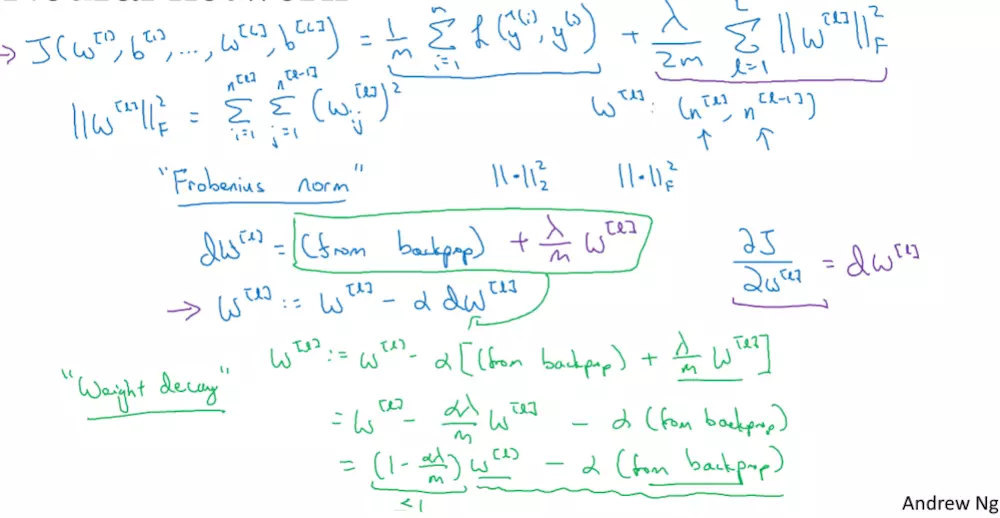 → J(w^[1], b^[1], ..., w^[L], b^[L]) = 1/m Σ_{i=1}^{n} L(ŷ^(i), y^(i)) + λ/2m Σ_{l=1}^{L} ||w^[l]||²_F
||w^[l]||²_F = Σ_{i=1}^{n^[l]} Σ_{j=1}^{n^[l-1]} (w_ij^[l])² w^[l]: (n^[l], n^[l-1])
↑ ↑
"Frobenius norm" ||·||²_2 ||·||²_F
dw^[l] = (from backprop) + λ/m w^[l]
∂J/∂w^[l] = dw^[l]
→ w^[l] := w^[l] - α dw^[l]
"Weight decay"
w^[l] := w^[l] - α[(from backprop) + λ/m w^[l]]
= w^[l] - αλ/m w^[l] - α (from backprop)
= (1 - αλ/m) w^[l] - α (from backprop)
<1
Andrew Ng